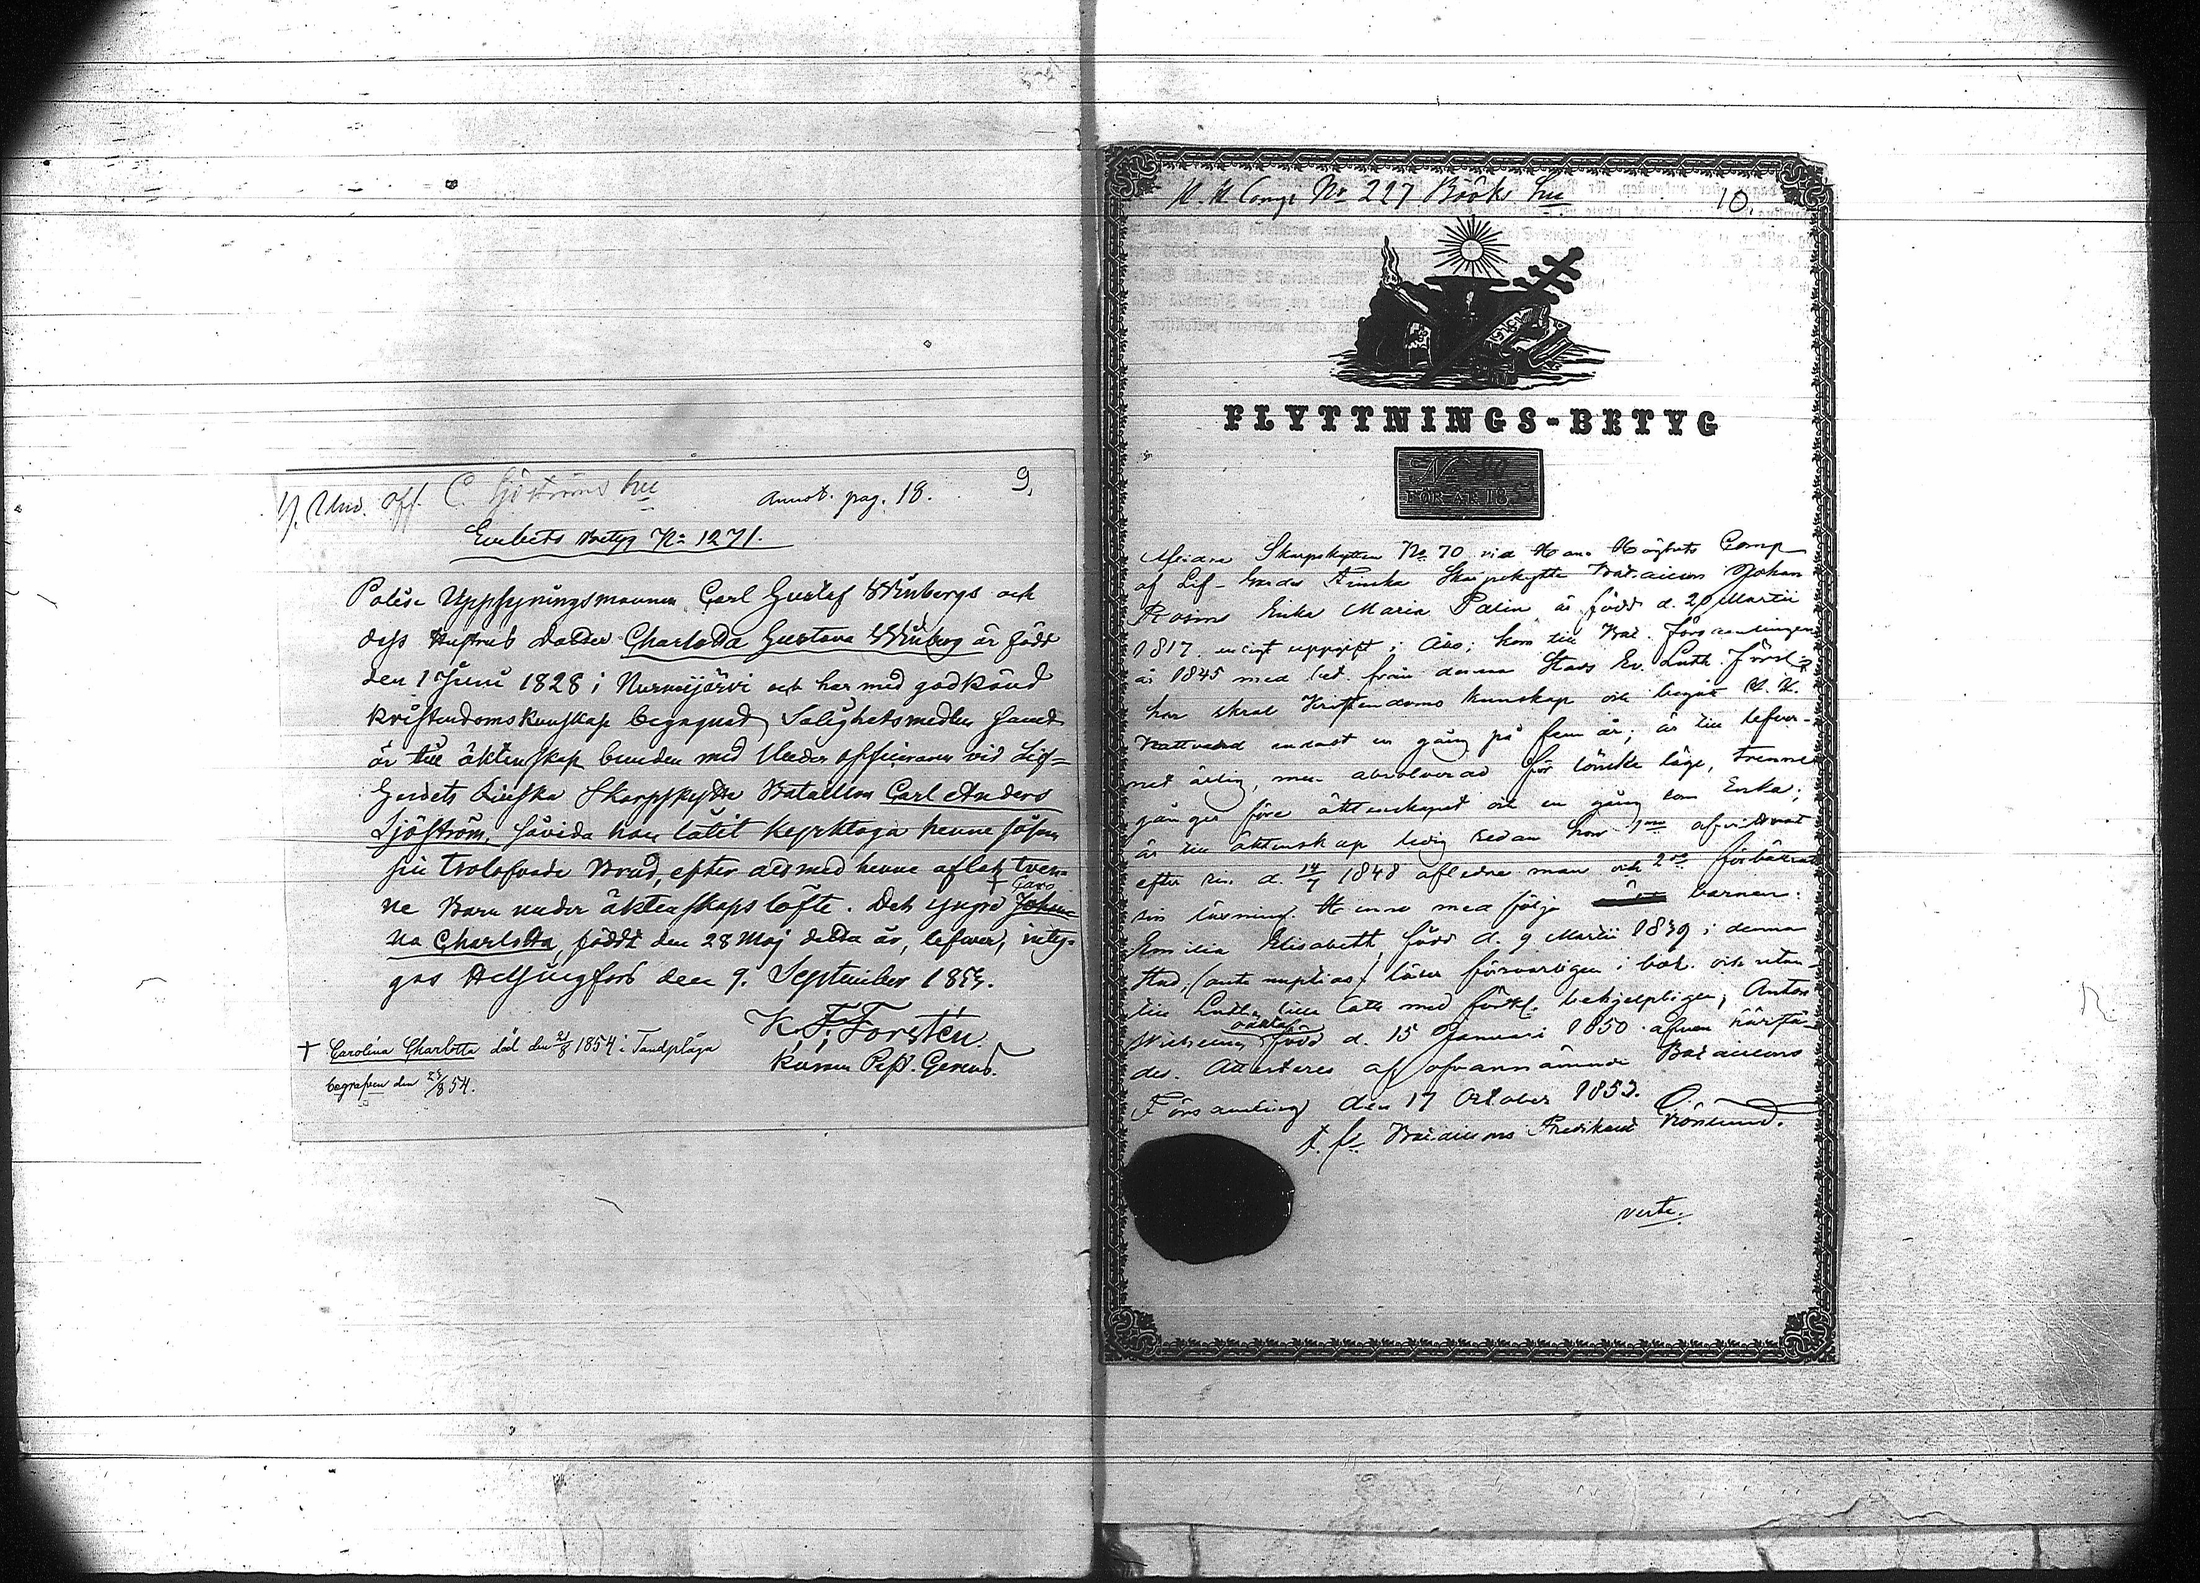 Und. off. C. Sjöströms hu
Annot. pag. 18.
9.
Embets Betyg No 1271.
Polise Uppsyningsmannen Carl Gustaf Winbergs och
dess Hustrus dotter Charlotta Gustava Winberg är född
den 1 Juni 1828 i Nurmijärvi och har med godkänd
kristendomskunskap begagnad Salighetsmedlen samt
är till äktenskap bunden med Under officeraren vid Lif-
Gardets Finska Skarpskytte Bataillon Carl Anders
Sjöström, såvida han låtit kyrktaga henne såsom
sin trolofvade Brud, efter det med henne aflat tven-
† Caro
ne Barn under äktenskaps löfte. Det yngre Johan-
na Charlotta, född den 28 Maj detta år, lefver, inty-
gas Helsingfors den 9. September 1853.
K. F. Forstén.
† Carolina Charlotta död den 21/8 1854 i Tandplåga
begrafven den 23/8 54.
Comp No 227 Bööks hu
10.
FLYTTNINGS-BETYG
No
FÖR ÅR 185
Afledne Skarpskytten No 70 vid Hans Höghets Comp
af Lif-Gardes Finska Skarpskytte Bataillon Johan
Roims Enka Maria Palin är född d. 20 Martii
1817 enligt uppgift i Åbo; kom till Bat. församlingen
år 1845 med bet. från denna Stads Ev. Luth. Förs.;
har skral Kristendoms kunskap och begått H. H.
Nattvard endast en gång på fem år; är till lefver-
net ärlig, men absolverad för lönska läge, trenne
gånger före äktenskapet och en gång som Enka;
är till äktenskap ledig sedan hon 1mo afvittrat
efter sin d. 14/7 1848 afledne man och 2do förbättrat
sin läsning. Henne medfölja barnen:
Emilia Elisabeth, född d. 9 Martii 1839 i denna
Stad, (ante nuptias) läser försvarligen i bok och utan-
till Luth. lilla Cath. med förkl. behjelpligen; Anton
Wilhelm, oäkta, född d. 15 Januari 1850 äfven härstä-
des. Attesteres af ofvannämnde Bataillons
Församling den 17 October 1853.
Bataillons Predikant
verte.